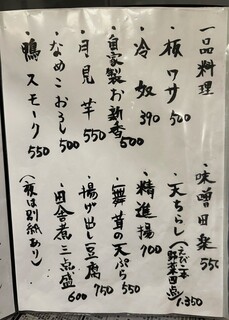 一品料理
・板ワサ 500
・冷奴 390
・自家製お新香 500
・月見芋 550
・なめこおろし 500
・鴨スモーク 550
・味噌田楽 550
・天ちらし(えび二本 野菜四点) 1,350
・精進揚 900
・舞茸の天ぷら 550
・揚げ出し豆腐 750
・田舎煮三点盛 600
(夜は別紙あり)